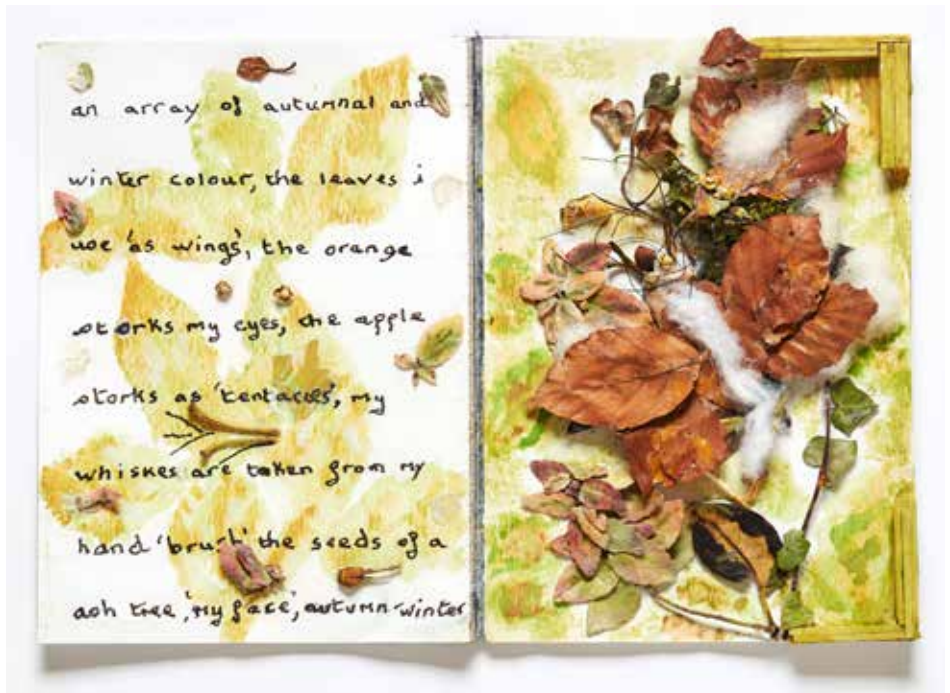 an array of autumnal and
winter colour, the leaves i
use 'as wings', the orange
storks my eyes, the apple
storks as 'tentacles', my
whiskes are taken from my
hand 'brush' the seeds of a
ash tree, 'my face', autumn-winter